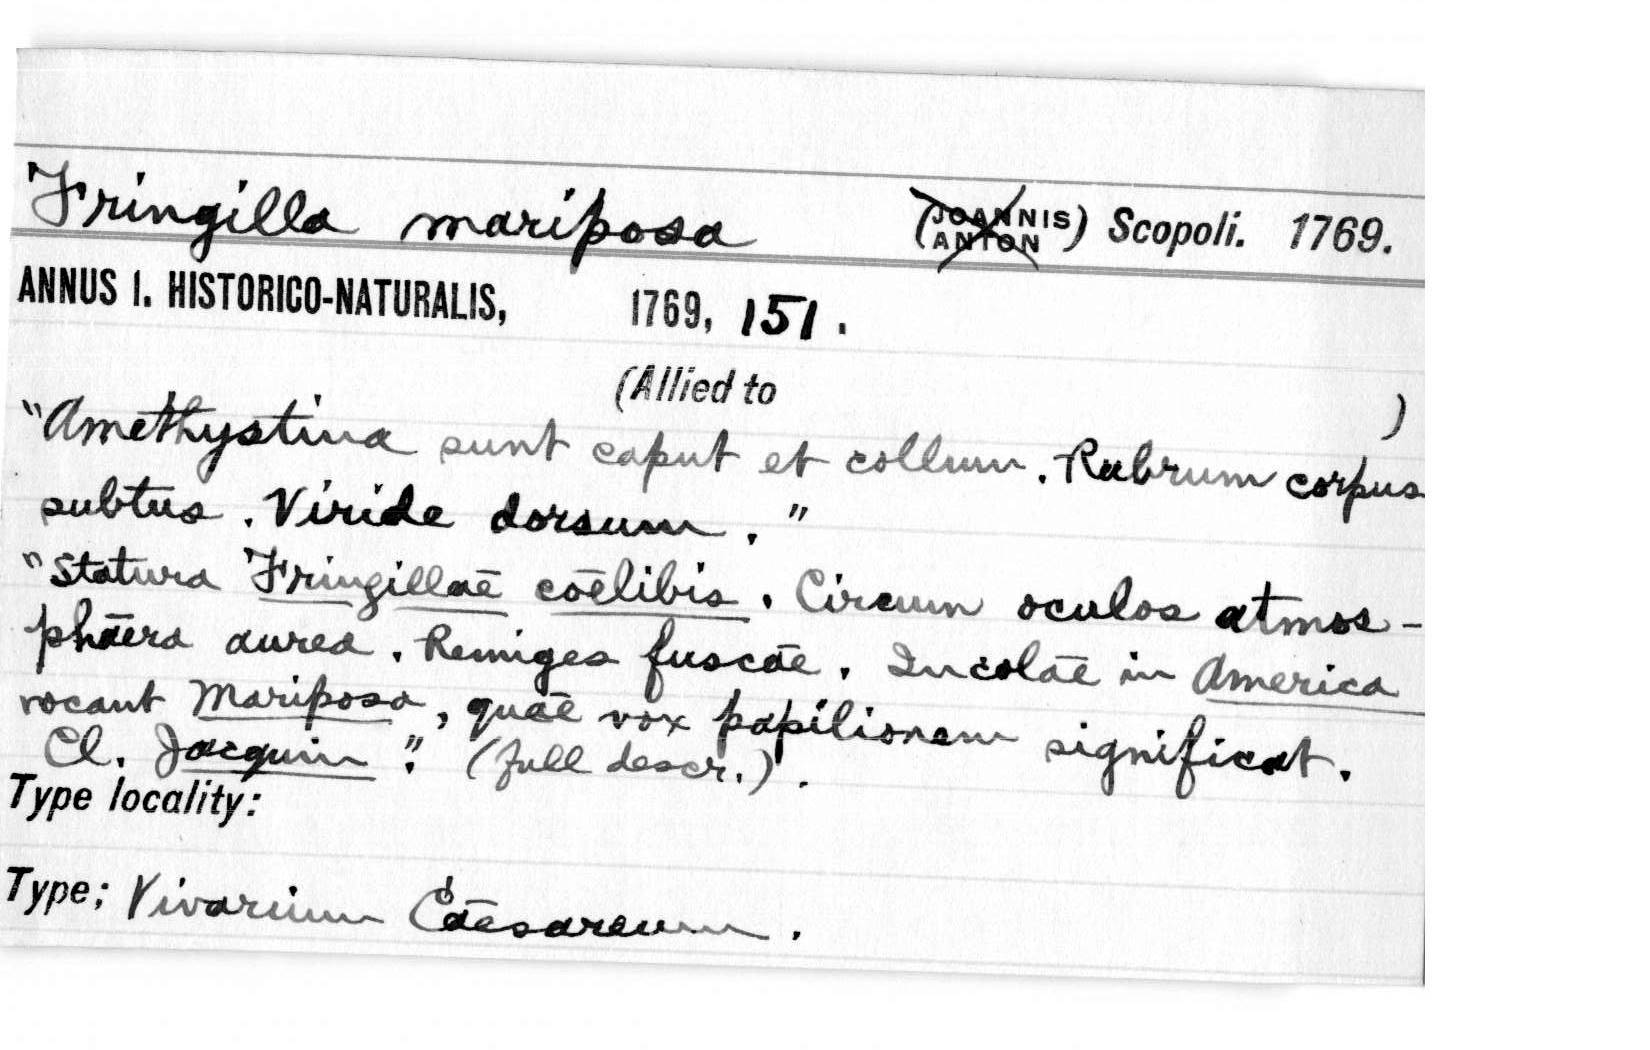 Fringilla mariposa (JOANNIS ANTON) Scopoli. 1769.
ANNUS I. HISTORICO-NATURALIS, 1769, 151.
(Allied to )
"Amethystina sunt caput et collum. Rubrum corpus
subtus. Viride dorsum."
"Statura Fringillae coelibis. Circum oculos atmos-
phaera aurea. Remiges fuscae. Incolae in America
vocant Mariposa, quae vox papilionem significat.
Cl. Jacquin". (full descr.).
Type locality:
Type; Vivarium Caesareum.